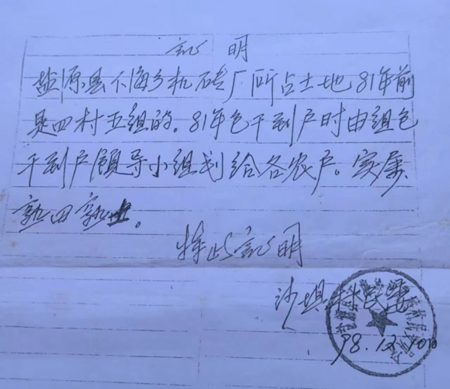 证明
盐源县下海乡机砖厂所占土地81年前
是四村五组的。81年包干到户时由组包
干到户领导小组划给各农户。实属
熟田熟土。
特此证明
沙坝村民
98.12.10